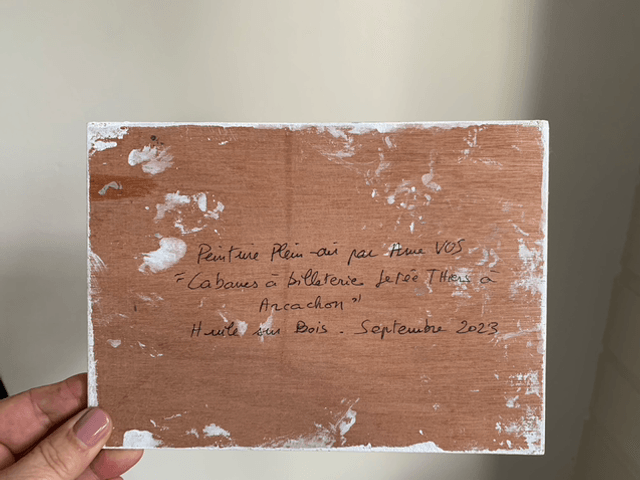 Peinture Plein-air par Anne VOS
"Cabanes à billeterie Jetée THiers à
Arcachon"
Huile sur Bois. Septembre 2023